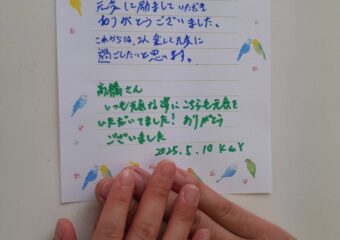 元気に励ましていただき
ありがとうございました。
これからは、楽しく元気に
過ごしたいと思います。
高橋さん
いつも元気な声にこちらも元気を
いただいてました! ありがとう
ございました
2025.5.10 K&Y